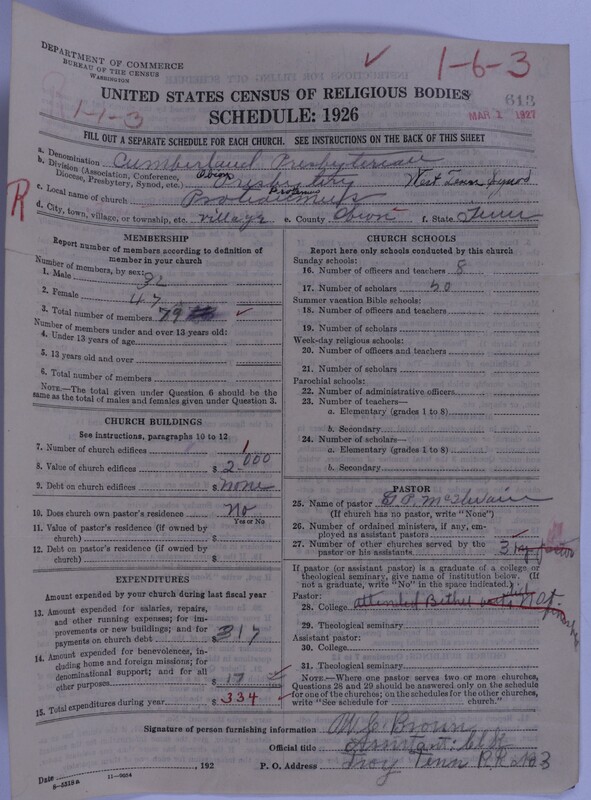 DEPARTMENT OF COMMERCE
BUREAU OF THE CENSUS
WASHINGTON
1-6-3
UNITED STATES CENSUS OF RELIGIOUS BODIES
613
1-1-3
SCHEDULE: 1926
MAR 1 1927
FILL OUT A SEPARATE SCHEDULE FOR EACH CHURCH. SEE INSTRUCTIONS ON THE BACK OF THIS SHEET
a. Denomination Cumberland Presbyterian
b. Division (Association, Conference, Diocese, Presbytery, Synod, etc.) Obion Presbytery West Tenn Synod
R
c. Local name of church
d. City, town, village, or township, etc. village e. County Obion f. State Tenn
MEMBERSHIP
Report number of members according to definition of
member in your church
Number of members, by sex:
1. Male 32
2. Female 47
3. Total number of members 79
Number of members under and over 13 years old:
4. Under 13 years of age
5. 13 years old and over
6. Total number of members
NOTE.—The total given under Question 6 should be the
same as the total of males and females given under Question 3.
CHURCH BUILDINGS
See instructions, paragraphs 10 to 12
7. Number of church edifices 1
8. Value of church edifices $ 2000
9. Debt on church edifices $ none
10. Does church own pastor's residence No
Yes or No
11. Value of pastor's residence (if owned by
church) $
12. Debt on pastor's residence (if owned by
church) $
EXPENDITURES
Amount expended by your church during last fiscal year
13. Amount expended for salaries, repairs,
and other running expenses; for im-
provements or new buildings; and for
payments on church debt $ 317
14. Amount expended for benevolences, in-
cluding home and foreign missions; for
denominational support; and for all
other purposes $ 17
15. Total expenditures during year $ 334
CHURCH SCHOOLS
Report here only schools conducted by this church
Sunday schools:
16. Number of officers and teachers 8
17. Number of scholars 50
Summer vacation Bible schools:
18. Number of officers and teachers
19. Number of scholars
Week-day religious schools:
20. Number of officers and teachers
21. Number of scholars
Parochial schools:
22. Number of administrative officers
23. Number of teachers—
a. Elementary (grades 1 to 8)
b. Secondary
24. Number of scholars—
a. Elementary (grades 1 to 8)
b. Secondary
PASTOR
25. Name of pastor P. McIlwain
(If church has no pastor, write "None")
26. Number of ordained ministers, if any, em-
ployed as assistant pastors
27. Number of other churches served by the
pastor or his assistants 3 by pastor
If pastor (or assistant pastor) is a graduate of a college or
theological seminary, give name of institution below. (If
not a graduate, write "No" in the space indicated.)
Pastor:
28. College attended Bethel did not
29. Theological seminary
Assistant pastor:
30. College
31. Theological seminary
NOTE.—Where one pastor serves two or more churches,
Questions 28 and 29 should be answered only on the schedule
for one of the churches; on the schedules for the other churches,
write "See schedule for church."
Signature of person furnishing information M. C. Brown
Official title Assistant Clk
Date , 192 P. O. Address Troy Tenn R R No 3
8-5518a 11-9054